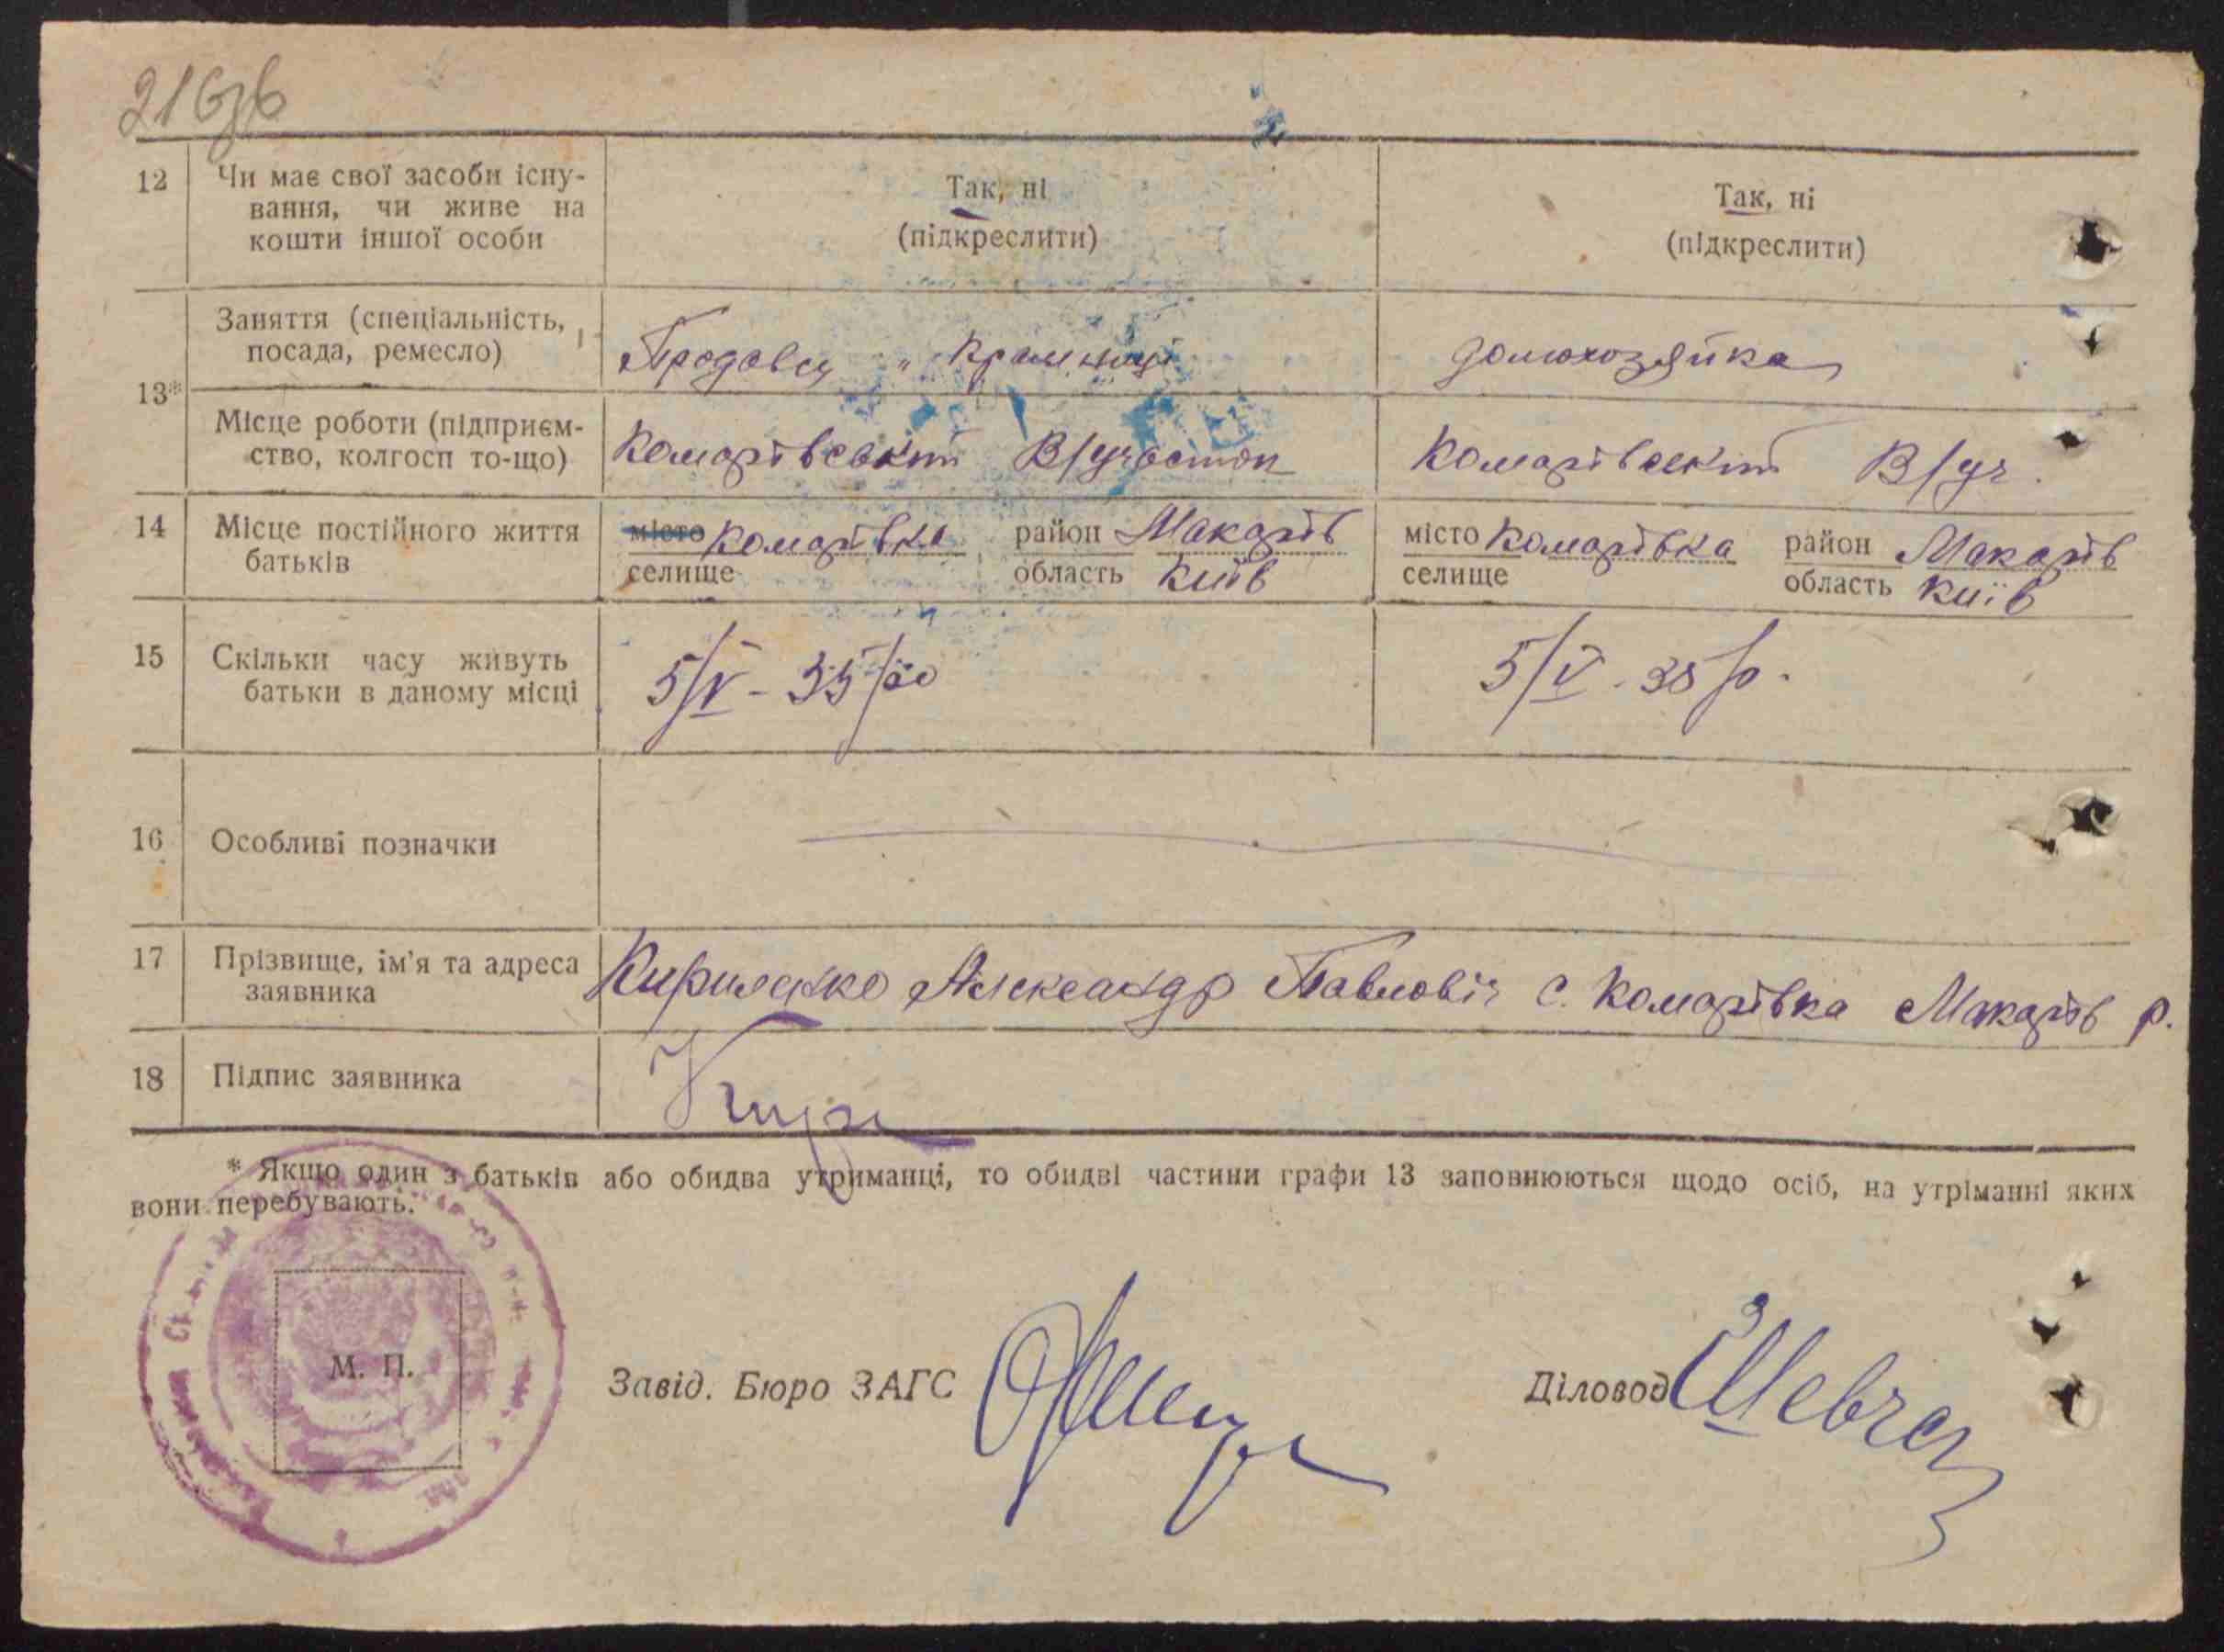 216зв
12 Чи має свої засоби існу-
вання, чи живе на
кошти іншої особи
Так, ні
(підкреслити)
Так, ні
(підкреслити)
13*
Заняття (спеціальність,
посада, ремесло)
Продавец " крамниці
домохозяйка
Місце роботи (підприєм-
ство, колгосп то-що)
Комарівський В/участок
Комарівський В/уч.
14 Місце постійного життя
батьків
місто Комарівка район Макарів
селище область Київ
місто Комарівка район Макарів
селище область Київ
15 Скільки часу живуть
батьки в даному місці
5/V - 35
5/V - 38 р.
16 Особливі позначки
17 Прізвище, ім'я та адреса
заявника
Кириленко Александр Павловіч с. Комарівка Макарів р.
18 Підпис заявника
* Якщо один з батьків або обидва утриманці, то обидві частини графи 13 заповнюються щодо осіб, на утріманні яких
вони перебувають.
М. П.
Завід. Бюро ЗАГС
Діловод Шевчен